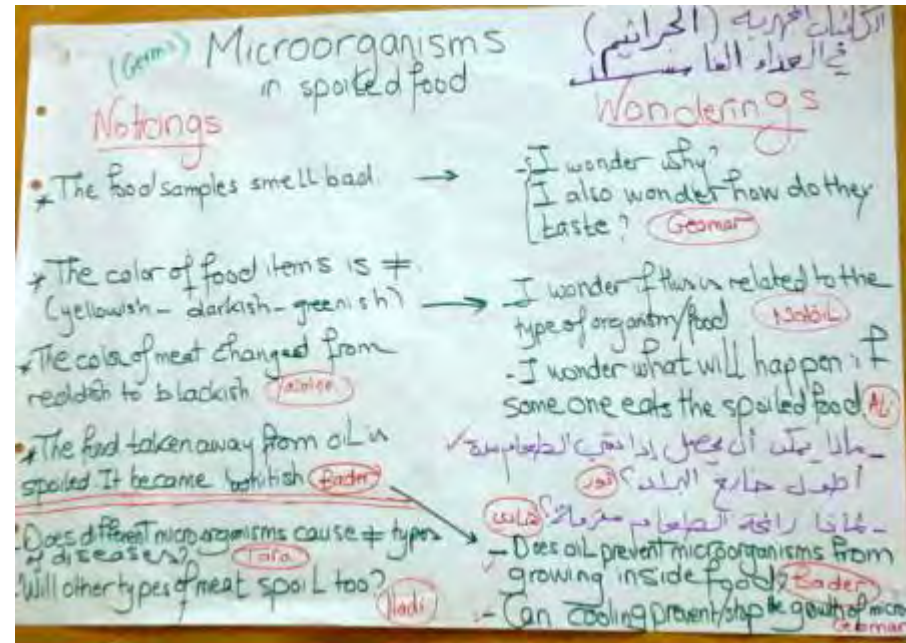 (Germs) Microorganisms
in spoiled food
الكائنات المجهرية (الجراثيم)
في الغذاء الفاسد
Notcings
* The food samples smell bad. →
* The color of food items is ≠.
(yellowish - darkish - greenish) →
* The color of meat changed from
reddish to blackish
* The food taken away from oil is
spoiled It became Bader
Does different microorganisms cause ≠ types
of diseases? Tara
Will other types of meat spoil too?
Hadi
Wonderings
- I wonder why?
I also wonder how do they
taste? Geomar
- I wonder if this is related to the
type of organism/food Nabil
- I wonder what will happen if
some one eats the spoiled food Ali
- ماذا يمكن أن يحصل إذا بقي الطعام مدة
أطول خارج البراد؟ نور
- لماذا رائحة الطعام
- Does oil prevent microorganisms from
growing inside food? Bader
- Can cooling prevent/stop the growth of micro
Geomar